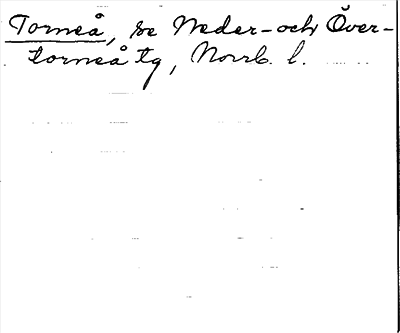 Torneå, se Neder- och Över-
torneå tg, Norrb. l.